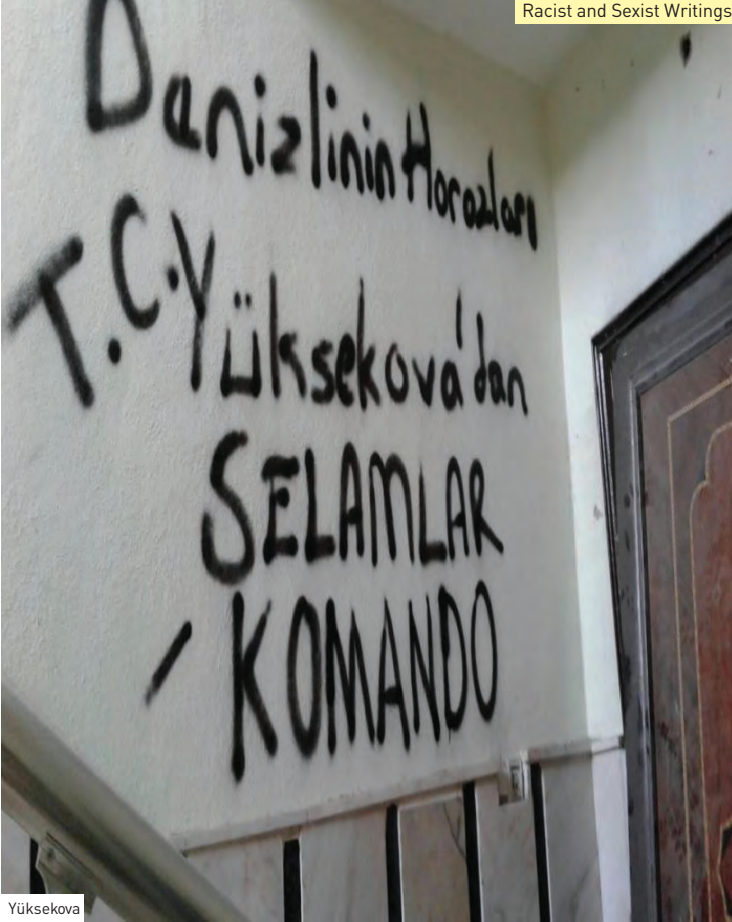 Racist and Sexist Writings
Denizlinin Horozları
T.C. Yüksekova'dan
SELAMLAR
KOMANDO
Yüksekova